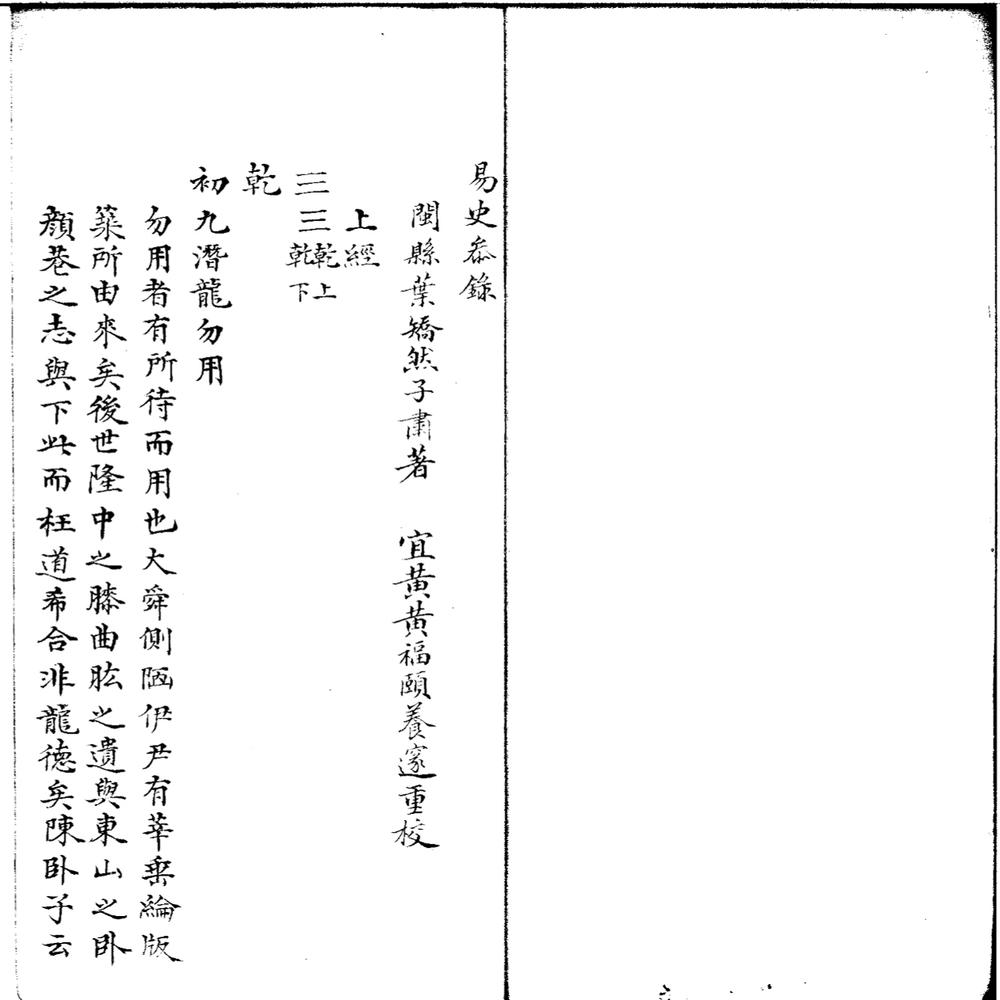 易史叅錄
閩縣葉矯然子肅著　宜黃黃福頤養邃重校
上經
☰☰乾上乾下
乾
初九潛龍勿用
勿用者有所待而用也大舜側陋伊尹有莘垂綸版
築所由來矣後世隆中之膝曲肱之遺與東山之卧
顏巷之志與下此而枉道希合非龍德矣陳卧子云